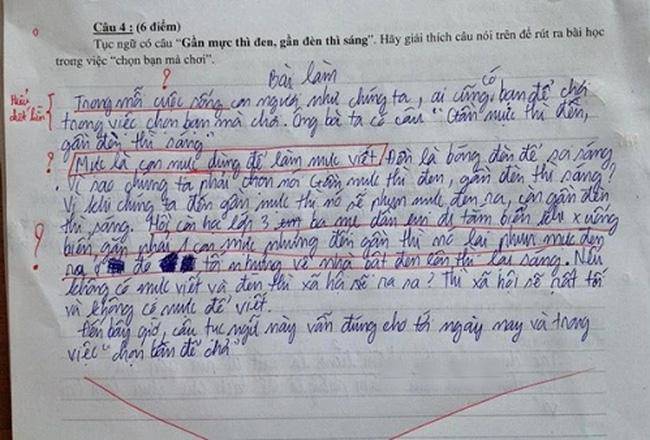 Câu 4 : (6 điểm)
Tục ngữ có câu “Gần mực thì đen, gần đèn thì sáng”. Hãy giải thích câu nói trên để rút ra bài học
trong việc “chọn bạn mà chơi”.
?
Bài làm
Trong mỗi cuộc sống con người như chúng ta, ai cũng có bạn để chơi
trong việc chọn bạn mà chơi. Ông bà ta có câu "Gần mực thì đen,
gần đèn thì sáng"
? Mực là con mực dùng để làm mực viết. Đèn là bóng đèn để ra sáng
. Vì sao chúng ta phải chọn nói Gần mực thì đen, gần đèn thì sáng?
Vì khi chúng ta đến gần mực thì nó sẽ phun mực đen ra, còn gần đèn
thì sáng. Hồi còn học lớp 3 ba mẹ dẫn em đi tắm biển khi xuống
? biển gần phải 1 con mực nhưng đến gần thì nó lại phun mực đen
ra ở đó tối nhưng về nhà bật đèn lên thì lại sáng. Nếu
không có mực viết và đèn thì xã hội sẽ ra sao? Thì xã hội sẽ rất tối
và không có mực để viết.
Đến bây giờ, câu tục ngữ này vẫn đúng cho tới ngày nay và trong
việc "chọn bạn để chơi"